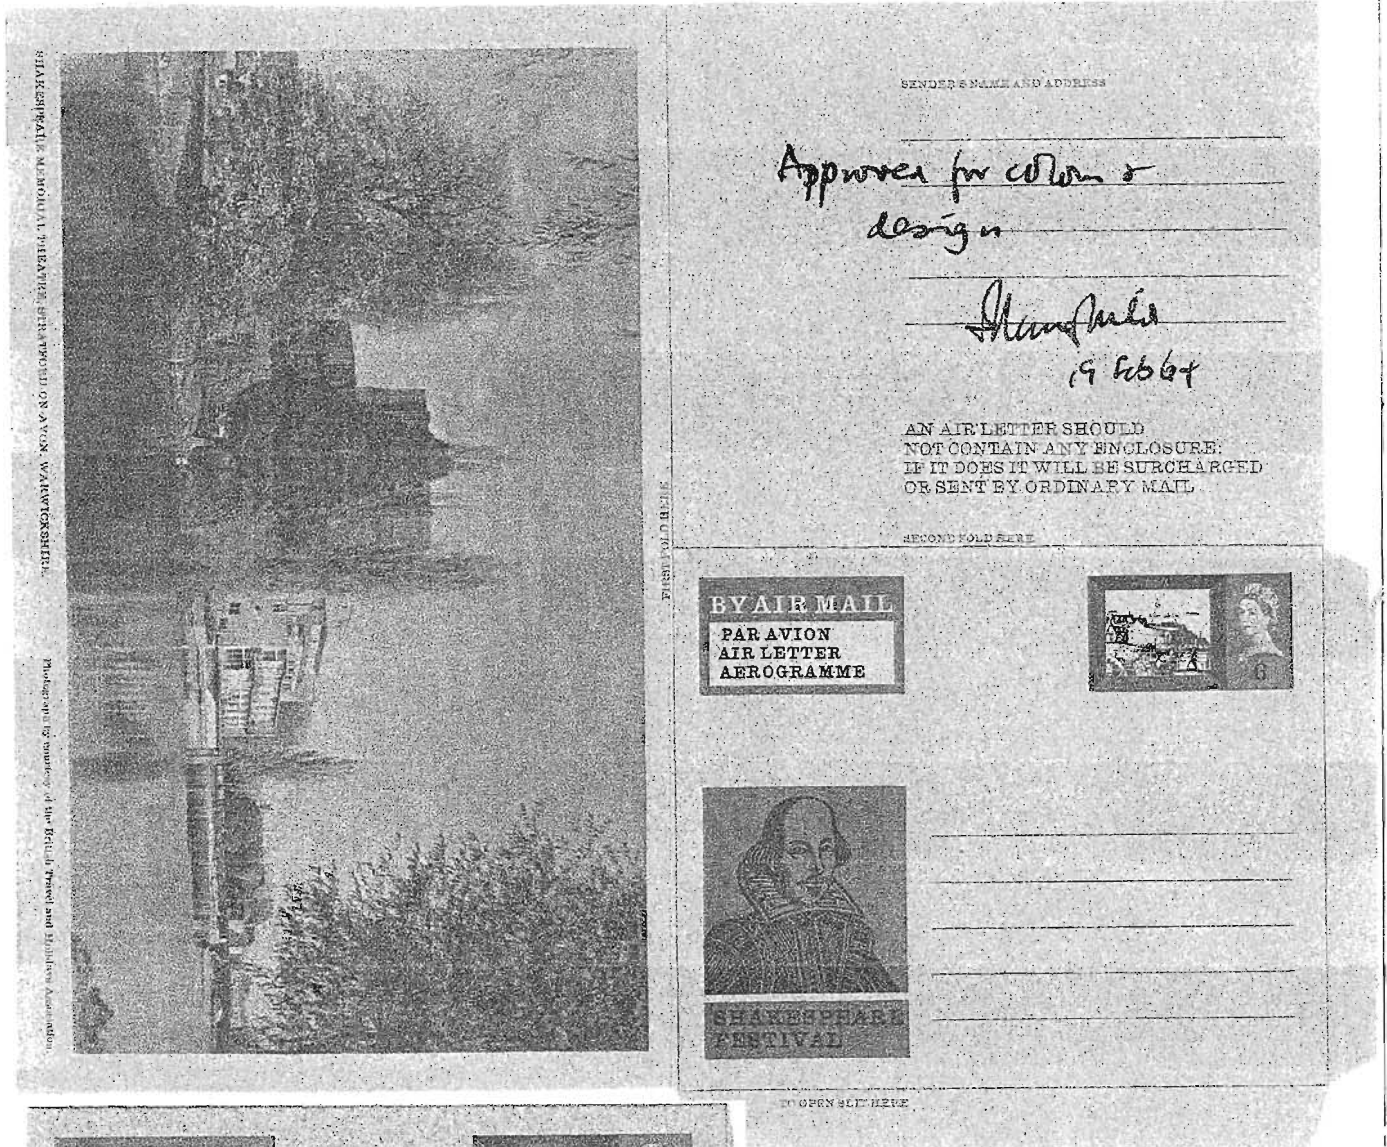 SHAKESPEARE MEMORIAL THEATRE, STRATFORD-ON-AVON, WARWICKSHIRE.
Photograph by courtesy of the British Travel and Holidays Association
FIRST FOLD HERE
SENDER'S NAME AND ADDRESS
Approved for colour &
design
19 Feb 64
AN AIR LETTER SHOULD
NOT CONTAIN ANY ENCLOSURE;
IF IT DOES IT WILL BE SURCHARGED
OR SENT BY ORDINARY MAIL
SECOND FOLD HERE
BY AIR MAIL
PAR AVION
AIR LETTER
AEROGRAMME
6
SHAKESPEARE
FESTIVAL
TO OPEN SLIT HERE